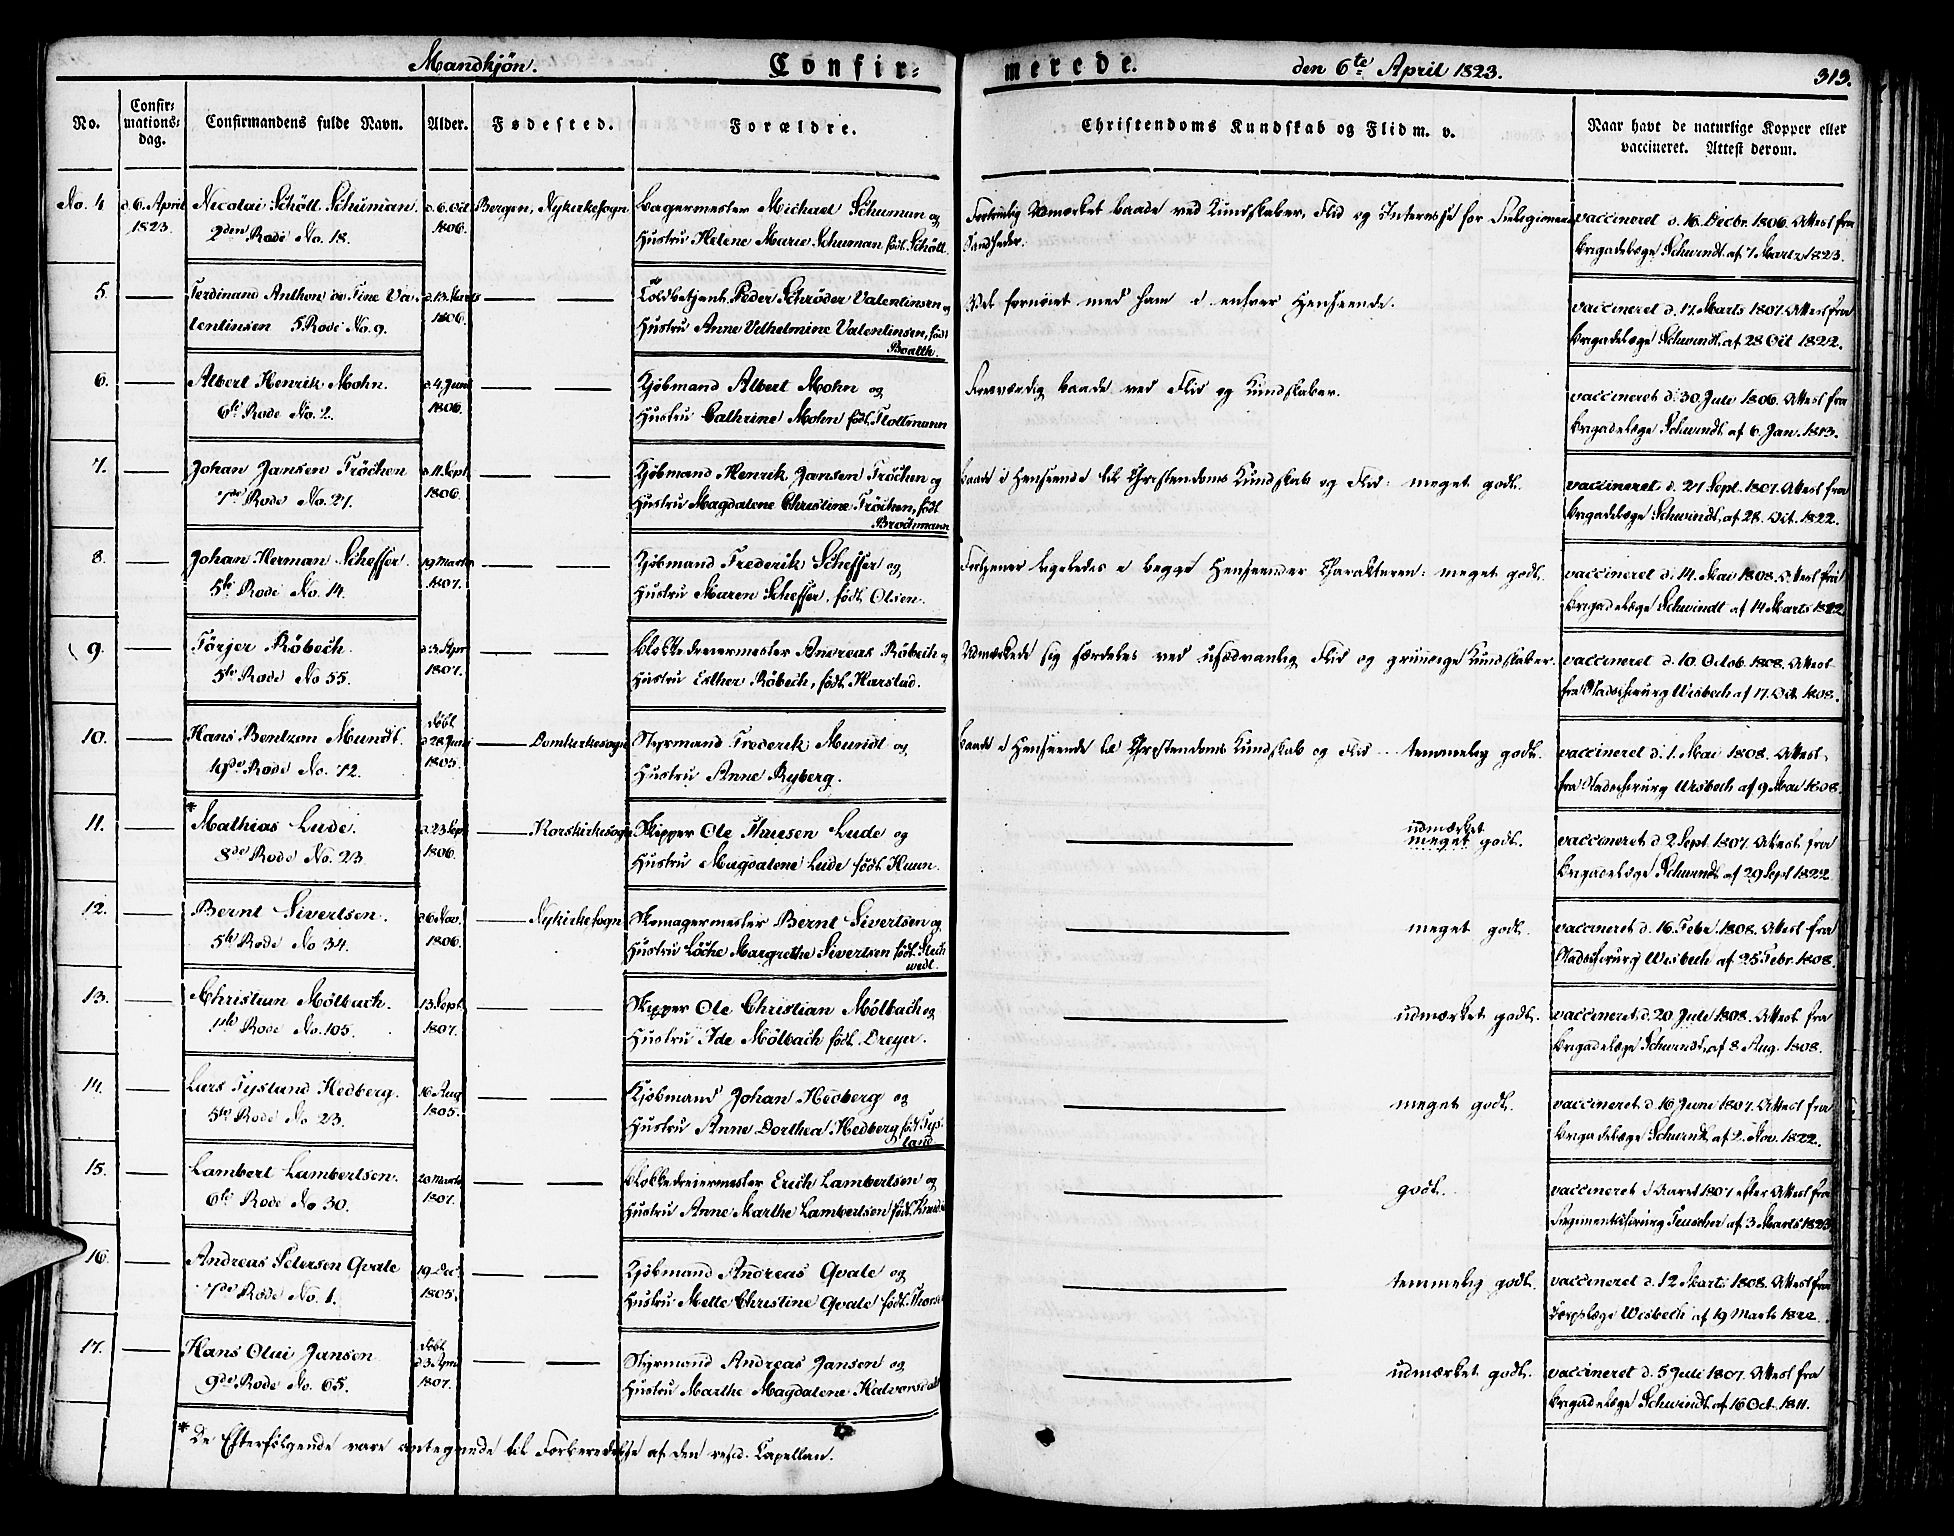 Mandkjön. Confirmerede. den 6te April 1823. 313.
No. Confirmationsdag. Confirmandens fulde Navn. Alder. Fødested. Forældre. Christendoms Kundskab og Flid m. v. Naar havt de naturlige Kopper eller vaccineret. Attest derom.
No. 4 d. 6. April Nicolai Schöll Schuman. d. 6. Oct Bergen, Nykirkesogn Bagermester Michael Schuman og Fortrinlig Udmærket baade ved Kundskaber, Flid og Interesse for Religionens vaccineret d. 16. Decbr. 1806. Attest fra
1823. 2den Rode No. 18. 1806. Hustru Helene Marie Schuman født Schöll. Sandheder. Brigadelæge Schwindt af 7 Marts 1823.
5. Ferdinand Anthon de Fine Va- d. 13. Marts Toldbetjent Peder Schrøder Valentinsen og Vel fornöiet med ham i enhver Henseende. vaccineret d. 17. Marts 1807. Attest fra
lentinsen 5 Rode No. 9. 1806. Hustru Anne Vilhelmine Valentinsen, født Brigadelæge Schwindt, af 28 Oct 1822.
Boalth.
6. Albert Henrik Mohn. d. 4. Juni Kjöbmand Albert Mohn og Roesværdig baade ved Flid og Kundskaber. vaccineret d. 30 Juli 1806. Attest fra
6te Rode No. 2. 1806. Hustru Cathrine Mohn født Flottmann Brigadelæge Schwindt af 6. Jan. 1813.
7. Johan Jansen Fröchen d. 11. Sept. Kjöbmand Henrik Jansen Fröchen og Baade i Henseende til Christendoms Kundskab og Flid: meget godt. vaccineret d. 21 Sept. 1807. Attest fra
7de Rode No. 21. 1806. Hustru Magdalene Christine Fröchen, født Brigadelæge Schwindt, af 28. Oct. 1822.
Brochmann
8. Johan Herman Scheffer. 19 Marts Kjöbmand Frederik Scheffer og Fortjener ligeledes i begge Henseender Charakteren: meget godt. vaccineret d. 14. Mai 1808. Attest fra
5te Rode No. 14. 1807. Hustru Maren Scheffer, født Olsen. Brigadelæge Schwindt af 14 Marts 1822
9. Törjer Röbech d. 3. Apr Blokkedreiermester Andreas Röbech og Udmærkede sig særdeles ved usædvanlig Flid og grundige Kundskaber. vaccineret d. 10. Octob. 1808. Attest
5te Rode No 55. 1807. Hustru Esther Röbech, født Harstad. fra Stadschirurg Wisbech af 17. Oct. 1808.
10. Hans Bentzon Mundt. döbt d 28 Juni Domkirkesogn Styrmand Frederik Mundt og Baade i Henseende til Christendoms Kundskab og Flid temmelig godt. vaccineret d. 1. Mai 1808. Attest
19de Rode No. 12. 1805. Hustru Anne Ryberg. fra Stadschirurg Wisbech af 9 Mai 1808.
11. * Mathias Lude. d. 23 Sept Korskirkesogn Skipper Ole Hansen Lude og udmærket meget godt. vaccineret d. 2 Sept. 1807. Attest fra
8de Rode No. 23 1806. Hustru Magdalene Lude født Huun. Brigadelæge Schwindt af 29 Sept 1822.
12. Bernt Sivertsen. 26 Nov. Nykirkesogn Skomagermester Bernt Sivertsen og meget godt. vaccineret d. 16. Febr. 1808. Attest fra
5te Rode No 34. 1806. Hustru Löche Margrethe Sivertsen født Stech- Stadschirurg Wisbech af 25 Febr. 1808.
wedt.
13. Christian Mölbach. 13 Sept. Skipper Ole Christian Mölbach og udmærket godt. vaccineret d. 20 Juli 1808. Attest fra
1ste Rode No. 105. 1807. Hustru Ide Mölbach født Dreyer. Brigadelæge Schwindt, af 8 Aug. 1808.
14. Lars Tysland Hedberg. 16 Aug Kjöbmand Johan Hedberg og meget godt. vaccineret d. 16 Juni 1807. Attest fra
5te Rode No 23. 1805. Hustru Anne Dorthea Hedberg født Tys- Brigadelæge Schwindt, af 2. Nov. 1822.
land
15. Lambert Lambertsen. 20 Marts Blokkedreiermester Erich Lambertsen og godt. vaccineret i Aaret 1807 efter Attest fra
6te Rode No 30. 1807. Hustru Anne Marthe Lambertsen født Regimentschirurg Teuscher af 3 Marts 1823
16. Andreas Petersen Qvale 19 Dec. Kjöbmand Andreas Qvale og temmelig godt. vaccineret d. 12 Marts 1808. Attest fra
7de Rode No. 1. 1805. Hustru Mette Christine Qvale født Wisbech af 19 Marts 1822.
17. Hans Olai Jansen döbt d 3 Apr Styrmand Andreas Jansen og udmærket godt. vaccineret d. 5 Juli 1807. Attest fra
9de Rode No. 65. 1807. Hustru Marthe Magdalene Brigadelæge Schwindt, af 16 Oct. 1811.
* De Efterfölgende vare antegnede til Forberedelse af den resid. Capellan.